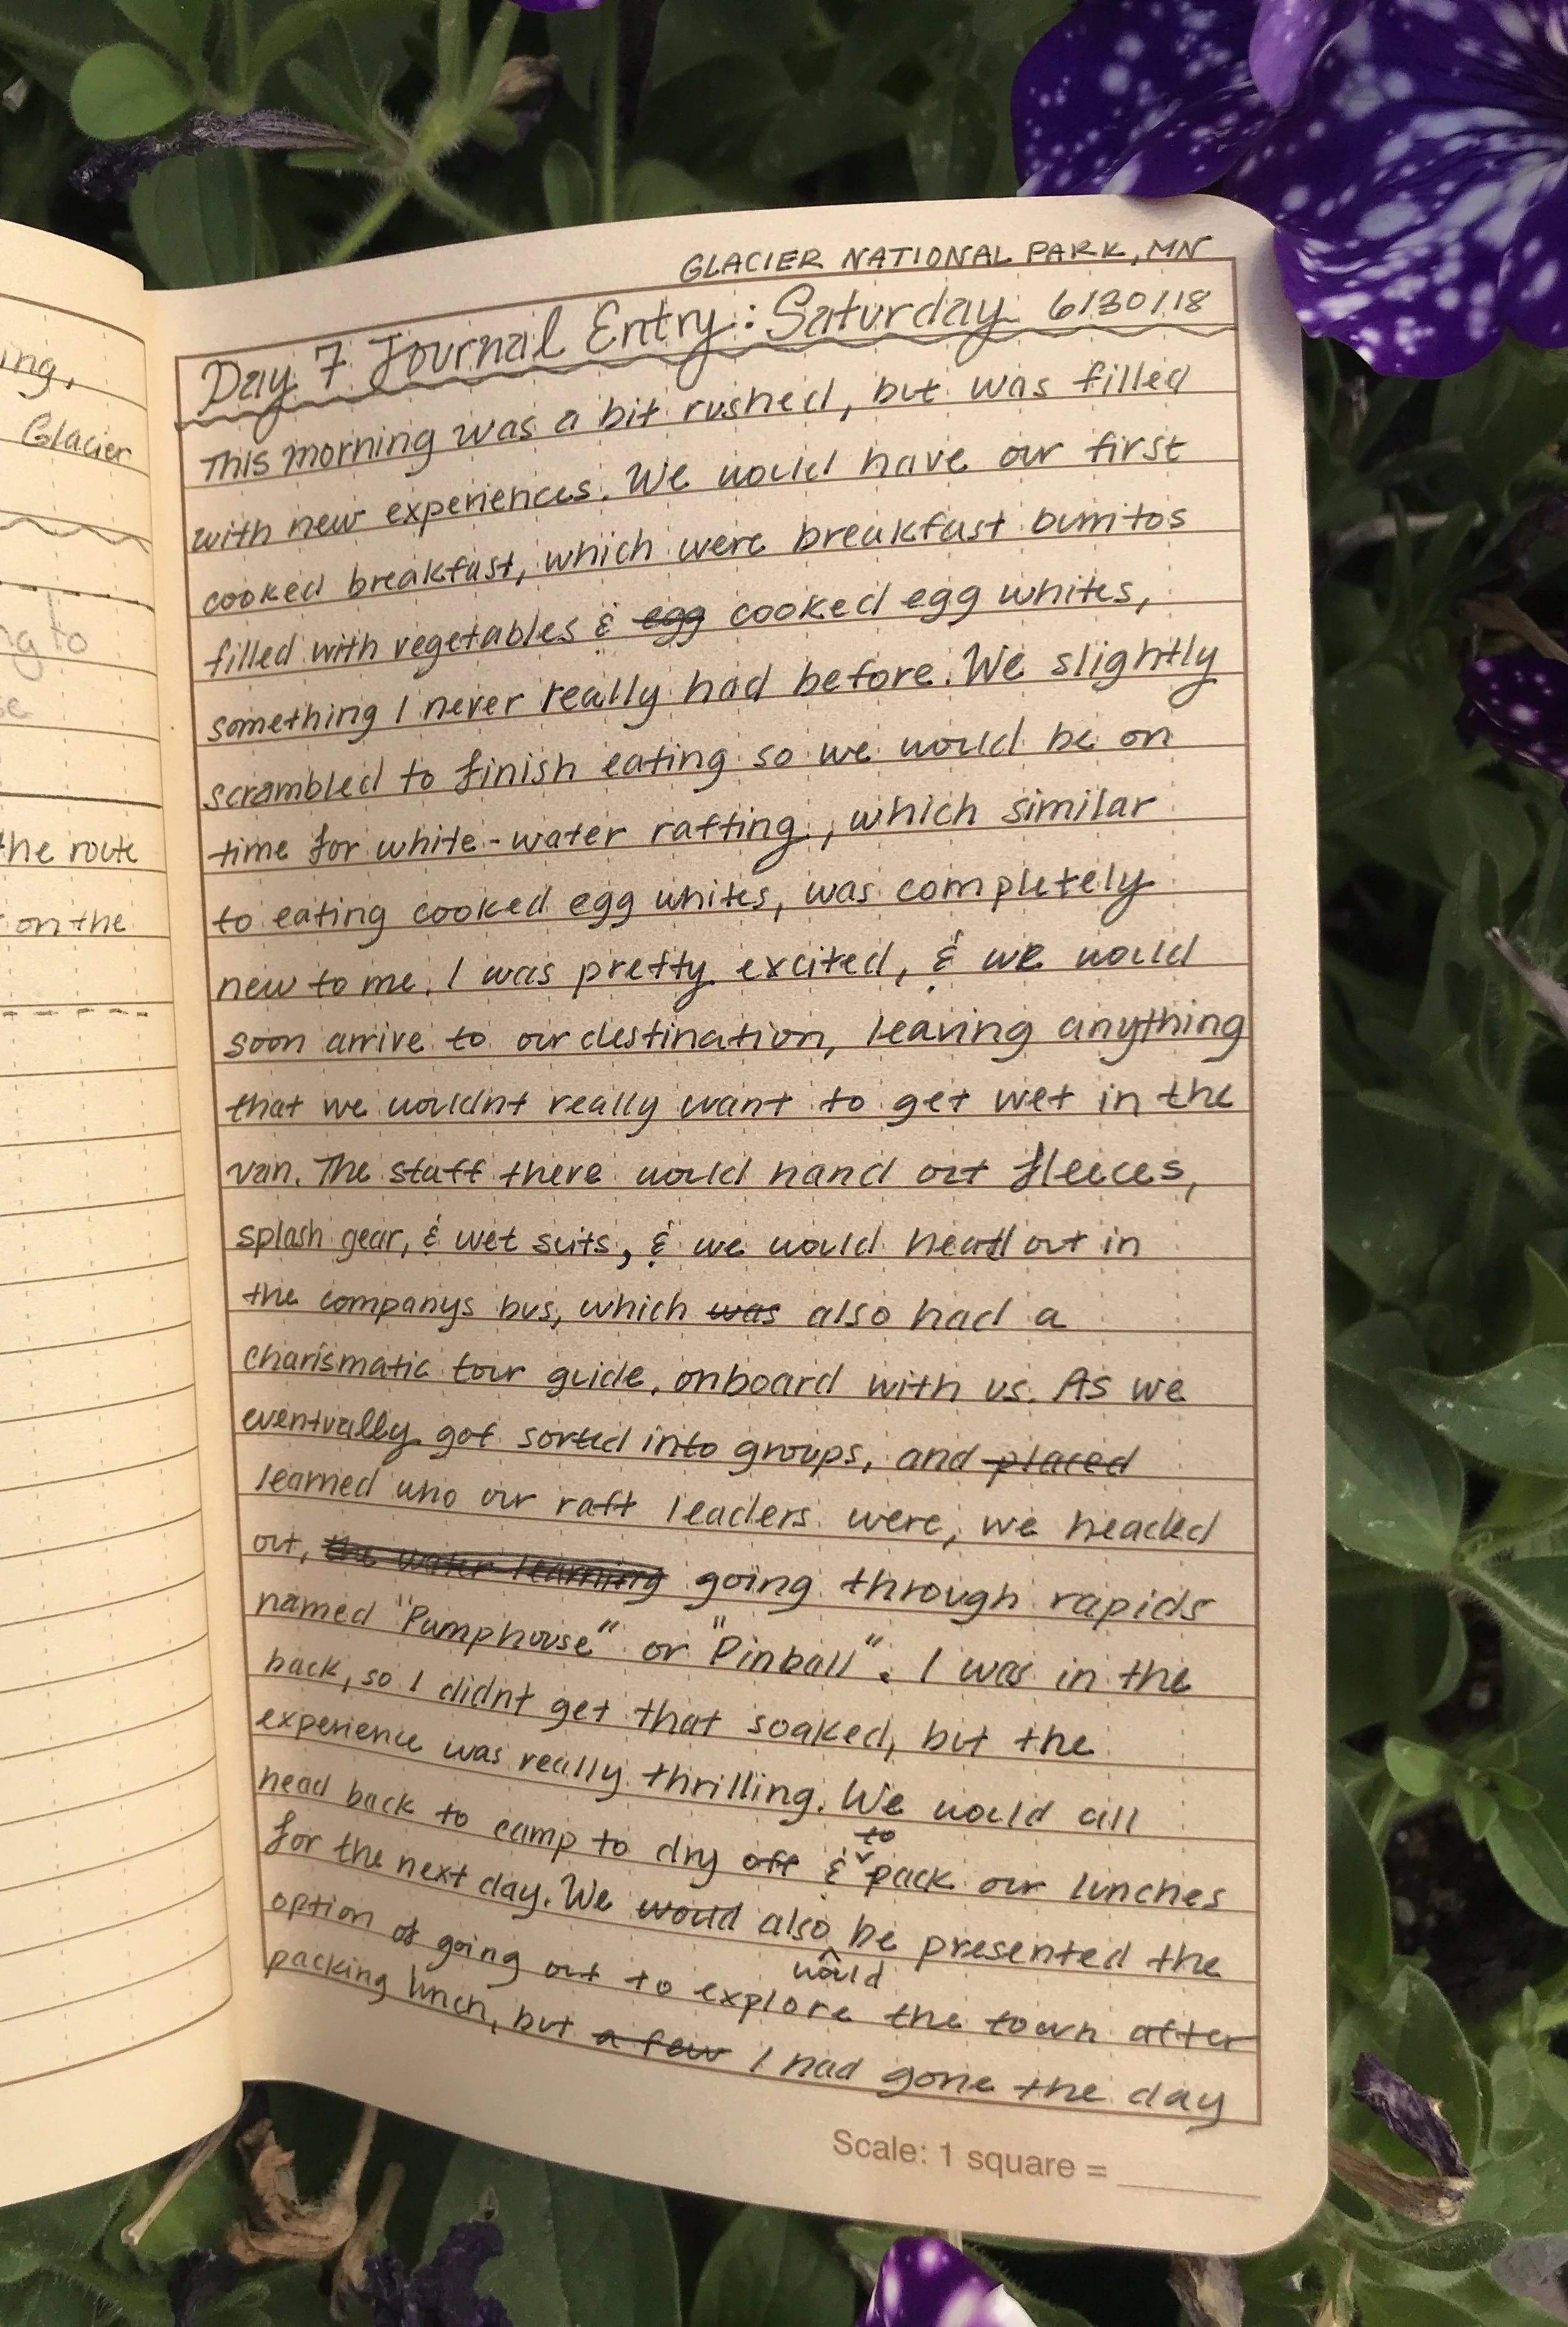 ing,
Glacier
ng to
se
the route
on the
GLACIER NATIONAL PARK, MN
Day 7 Journal Entry: Saturday 6/30/18
This morning was a bit rushed, but was filled
with new experiences. We would have our first
cooked breakfast, which were breakfast burritos
filled with vegetables & egg cooked egg whites,
something I never really had before. We slightly
scrambled to finish eating so we would be on
time for white-water rafting, which similar
to eating cooked egg whites, was completely
new to me. I was pretty excited, & we would
soon arrive to our destination, leaving anything
that we wouldnt really want to get wet in the
van. The staff there would hand out fleeces,
splash gear, & wet suits, & we would head out in
the companys bus, which was also had a
charismatic tour guide, onboard with us. As we
eventually got sorted into groups, and placed
learned who our raft leaders were, we headed
out, the water learning going through rapids
named "Pumphouse" or "Pinball". I was in the
back, so I didnt get that soaked, but the
experience was really thrilling. We would all
head back to camp to dry off & to pack our lunches
for the next day. We would also would be presented the
option of going out to explore the town after
packing lunch, but a few I had gone the day
Scale: 1 square =